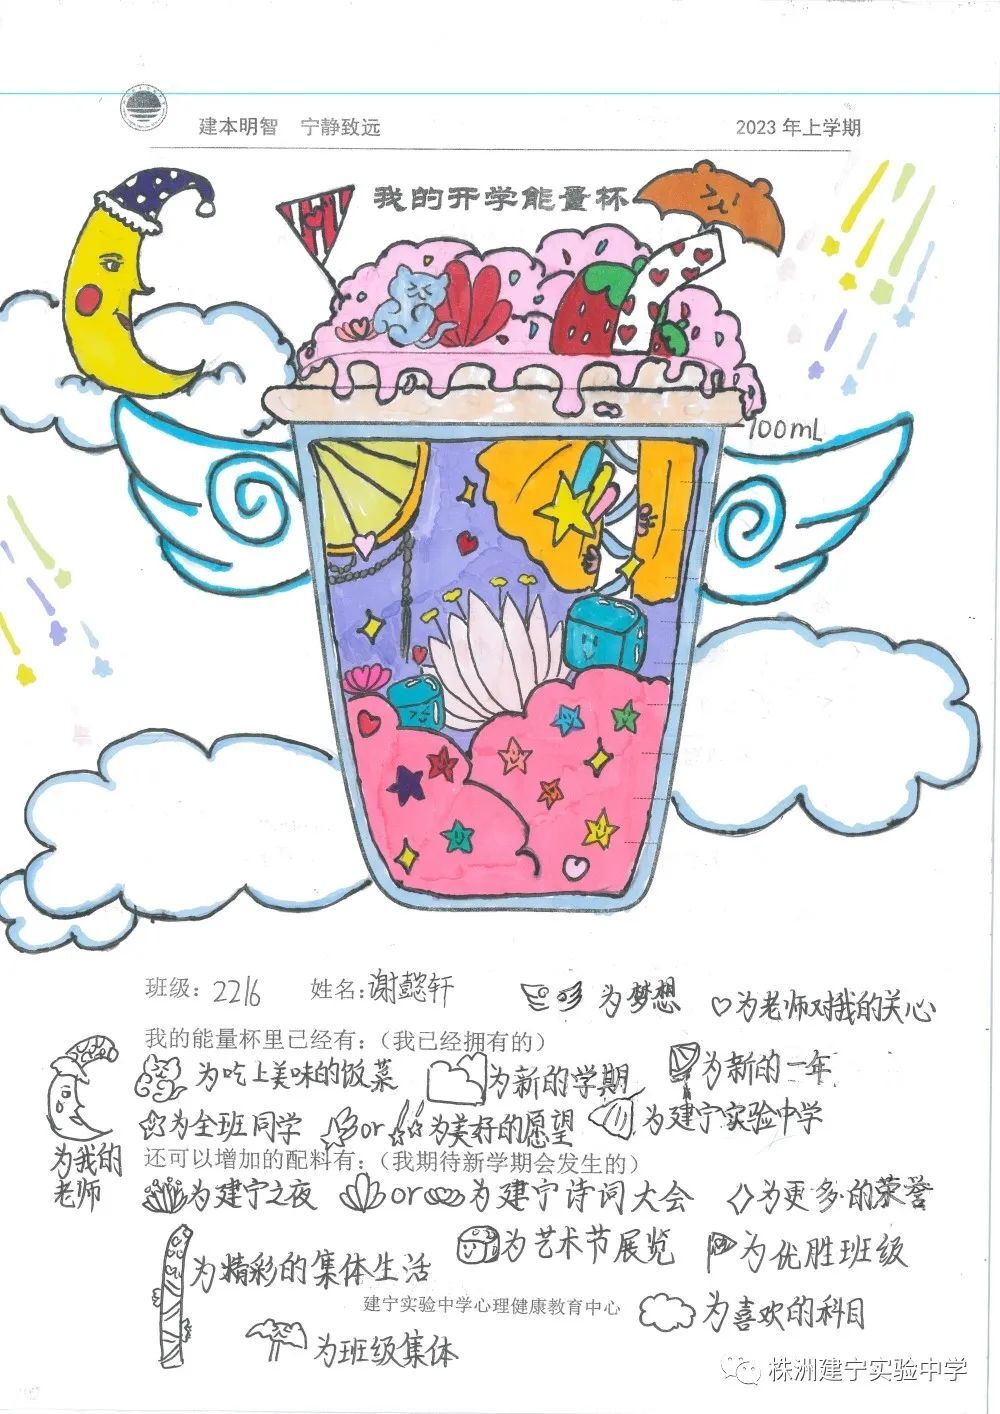 建本明智 宁静致远
2023年上学期
我的开学能量杯
100mL
班级：2216 姓名：谢懿轩
为梦想
为老师对我的关心
我的能量杯里已经有：（我已经拥有的）
为吃上美味的饭菜
为新的学期
为新的一年
为全班同学
or
为美好的愿望
为建宁实验中学
为我的
老师
还可以增加的配料有：（我期待新学期会发生的）
为建宁之夜
or
为建宁诗词大会
为更多的荣誉
为精彩的集体生活
为艺术节展览
为优胜班级
建宁实验中学心理健康教育中心
为喜欢的科目
为班级集体
株洲建宁实验中学